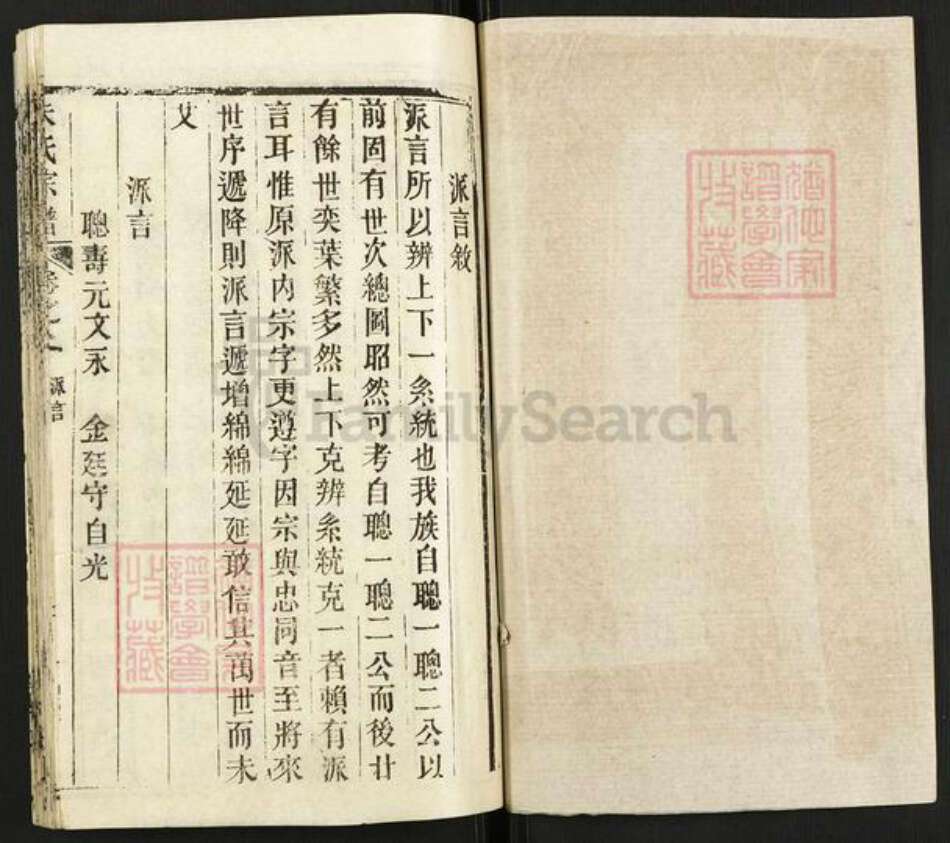 派言敘
派言所以辨上下一糸統也我族自聰一聰二公以
前固有世次總圖昭然可考自聰一聰二公而後廿
有餘世奕葉繁多然上下克辨糸統克一者賴有派
言耳惟原派内宗字更遵字因宗與忠同音至將來
世序遞降則派言遞增綿綿延延敢信其萬世而未
艾
派言
聰壽元文永 金廷守自光
朱氏宗譜 派言
譜學會
收藏
譜學會
收藏
FamilySearch